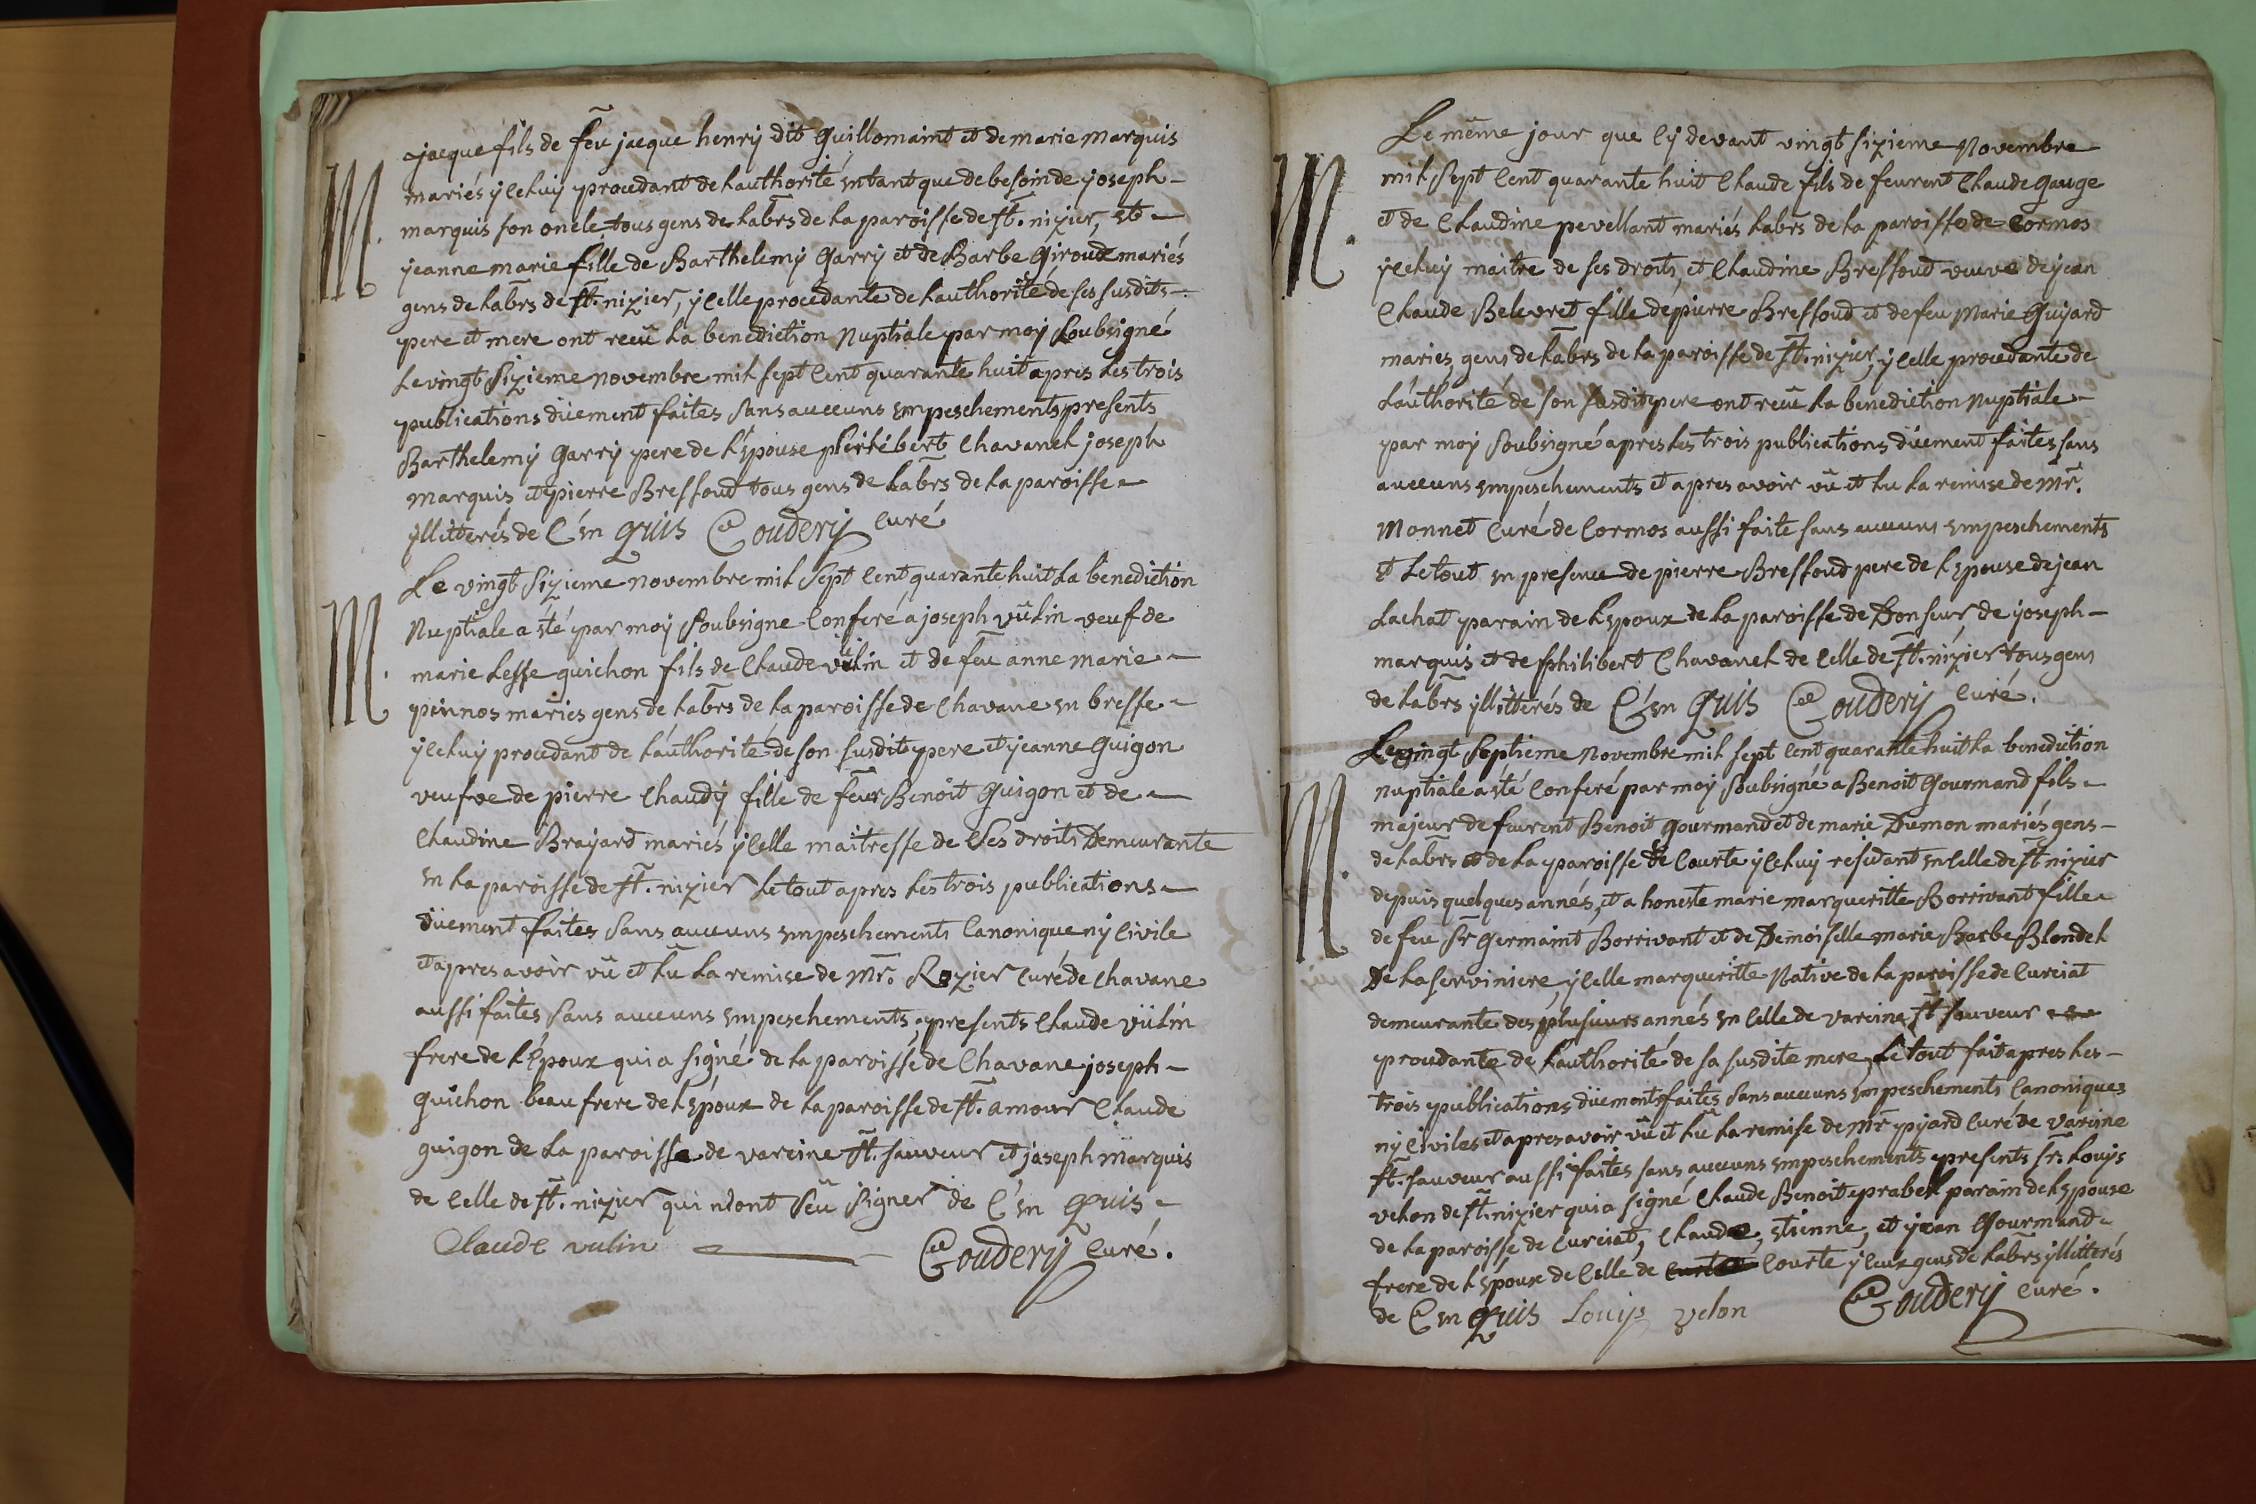 M.
jacque fils de feu jacque henry dit Guillomaint et de marie marquis
mariés yceluy procedant de lauthorité entant que de besoin de joseph
marquis son oncle tous gens de labrs de la paroisse de st. nizier, et
jeanne marie fille de Barthelemy Garry et de Barbe Giroud mariés
gens de labrs de st. nizier, ycelle procedante de lauthorité de ses susdits
pere et mere ont receu la benediction Nuptiale par moy soubsigné
Le vingt sizieme novembre mil sept cent quarante huit apres les trois
publications düement faites sans aucuns empeschements presents
Barthelemy Garry pere de l'Epouse Chavanel joseph
marquis et pierre Bressoud tous gens de labrs de la paroisse
yllitterés de C'en quis Gouderij curé
M.
Le vingt sizieme novembre mil sept cent quarante huit la benediction
Nuptiale a été par moy soubsigne conferé a joseph vülin veuf de
marie Lesse guichon fils de Claude vülin et de feu anne marie
pinnos mariés gens de labrs de la paroisse de Chavane en bresse
yceluy procedant de lauthorité de son susdit pere et jeanne Guigon
veufve de pierre Chaudy fille de feu Benoit Guigon et de
Claudine Brayard mariés ycelle maitresse de ses droits Demeurante
en la paroisse de st. nizier Le tout apres les trois publications
düement faites sans aucuns empeschements Canonique ny Civile
et apres avoir vü et lu la remise de mr. Rozier curé de Chavane
aussi faites sans aucuns empeschements, presents Claude vülin
frere de l'Epoux qui a signé de la paroisse de Chavane joseph
guichon beau frere de l'Epoux de la paroisse de st. amour Claude
guigon de la paroisse de vareine st. sauveur et joseph marquis
de celle de st. nizier qui n'ont sceu signer de C'en quis
Claude vulin Gouderij curé.
M.
Le même jour que cy devant vingt sizieme Novembre
mil sept cent quarante huit Claude fils de feurent Claude Gauge
et de Claudine pevellant mariés labrs de la paroisse de Cormos
yceluy maitre de ses droits, et Claudine Bressoud veuve de jean
Claude Belevret fille de pierre Bressoud et de feu Marie Guyard
mariez gens de labrs de la paroisse de st. nizier, ycelle procedante de
lauthorité de son susdit pere ont receu la benediction Nuptiale
par moy soubsigné apres les trois publications düement faites sans
aucuns empeschements et apres avoir vü et lu la remise de mr.
Monnet curé de Cormos aussi faite sans aucuns empeschements
et Le tout en presence de pierre Bressoud pere de l'Epouse de jean
Lachat parain de l'Epoux de la paroisse de Donseur de joseph
marquis et de philibert Chavanel de celle de st. nizier tous gens
de labrs yllitterés de C'en Quis Gouderij curé.
M.
Le vingt septieme Novembre mil sept cent quarante huit la benediction
nuptiale a été conferé par moy soubsigné a Benoit Gourmand fils
majeur de feurent Benoit Gourmand et de marie Dumon mariés gens
de labrs de la paroisse de Courte yceluy residant en celle de st nizier
depuis quelques annés, et a honeste marie margueritte Borrivant fille
de feu Sr Germaint Borrivant et de Demoiselle marie Barbe Blondel
De la serviniere, ycelle margueritte Native de la paroisse de Curciat
demeurante des plusieurs annés en celle de vareine st sauveur
procedante de lauthorité de sa susdite mere, Le tout fait apres les
trois publications düement faites sans aucuns empeschements Canoniques
ny Civiles et apres avoir vü et lu la remise de mr pyard curé de vareine
st. sauveur aussi faites sans aucuns empeschements presents sr. Louys
velon de st. nizier qui a signé Claude Benoit prabel parain de l'Epouse
de la paroisse de Curciat, Claude, etienne, et jean Gourmand
frere de l'Epoux de celle de Courte yceux gens de labrs yllitterés
de C'en quis Louys velon Gouderij curé.